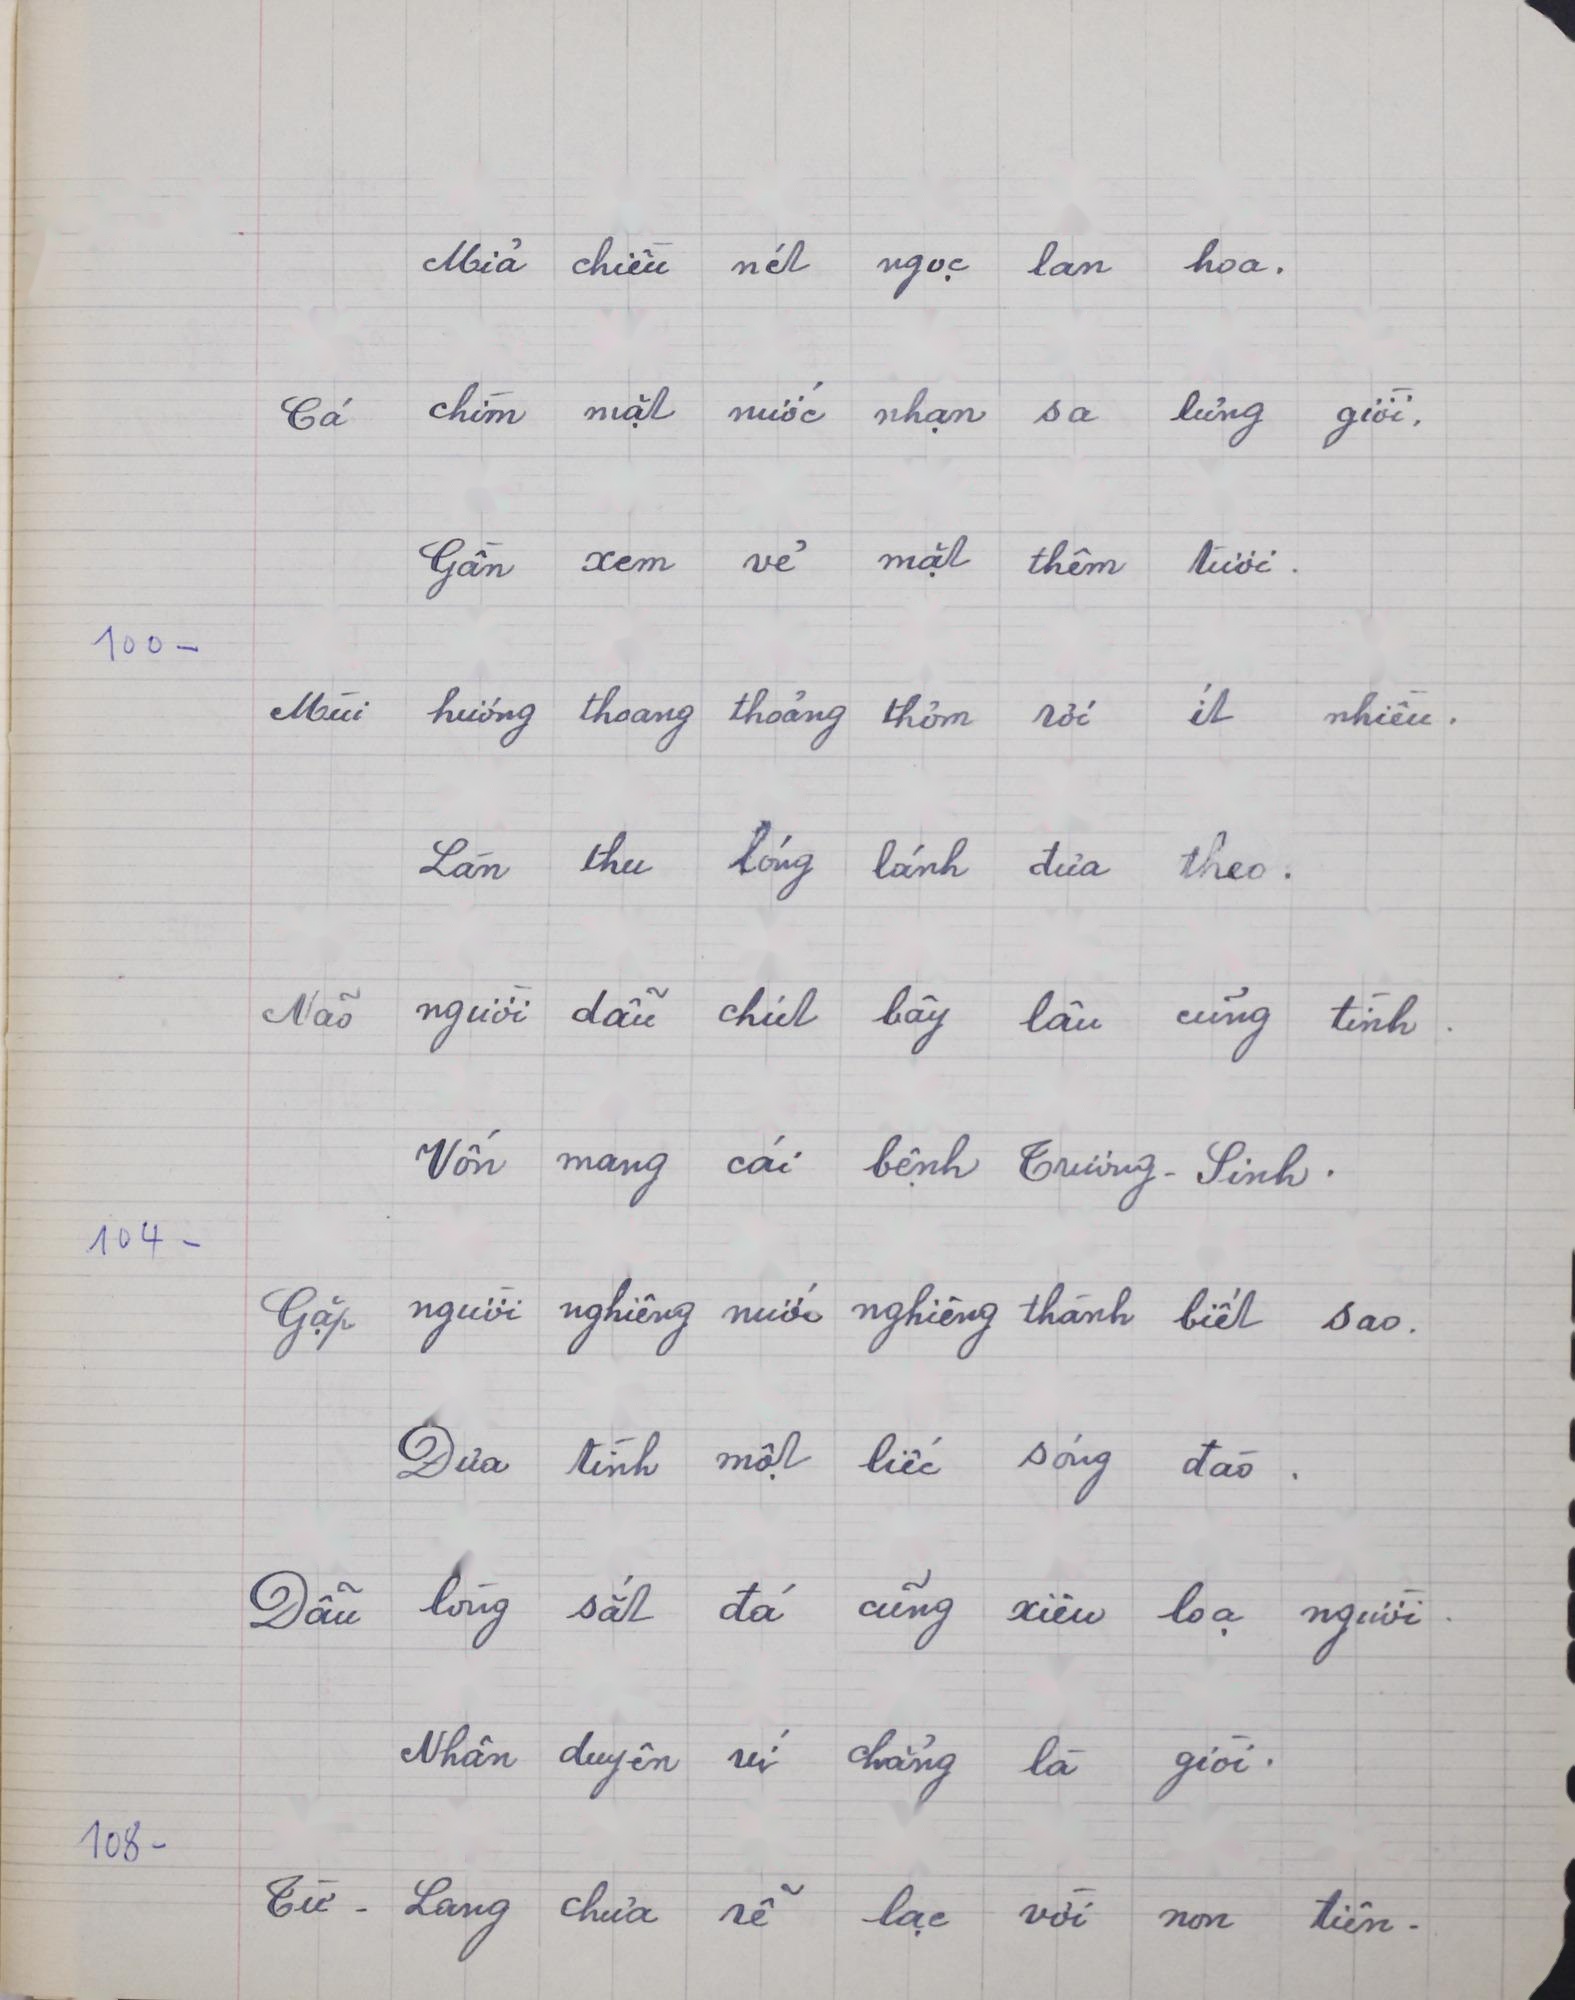 Mỉa chiều nét ngọc lan hoa.
Cá chìm mặt nước nhạn sa lưng giời.
Gần xem vẻ mặt thêm tươi.
100-
Mùi hương thoang thoảng thơm rơi ít nhiều.
Làn thu lóng lánh đưa theo.
Não người dẫu chút bây lâu cũng tình.
Vốn mang cái bệnh Trương-Sinh.
104-
Gặp người nghiêng nước nghiêng thành biết sao.
Đưa tình một liếc sóng đào.
Dẫu lòng sắt đá cũng xiêu lọ người.
Nhân duyên ví chẳng là giời.
108-
Từ-Lang chưa rễ lạc vời non tiên.